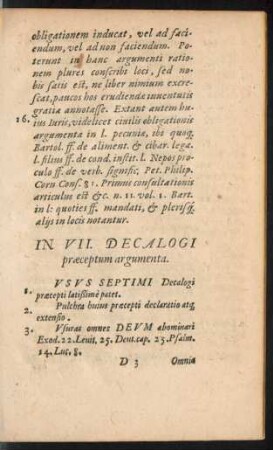 obligationem inducat, vel ad faci-
endum, vel ad non faciendum. Po-
terunt in hanc argumenti ratio-
nem plures conscribi loci, sed no-
bis satis est, ne liber nimium excre-
scat, paucos hos erudiendæ iuuentutis
gratia annotasse. Extant autem hu-
16. ius Iuris, videlicet ciuilis obligationis
argumenta in l. pecuniæ, ibi quoq.
Bartol. ff. de aliment. & cibar. lega.
l. filius ff. de cond. instit. l. Nepos pro-
culo ff. de verb. signific. Pet. Philip.
Corn Cons. 81. Primus consultationis
articulus est &c. n. 11. vol. 1. Bart.
in l: quoties ff. mandati, & plerisq́.
alijs in locis notantur.
IN VII. DECALOGI
præceptum argumenta.
VSVS SEPTIMI Decalogi
1. præcepti latissimè patet.
2. Pulchra huius præcepti declaratio atq́.
extensio.
3. Vsuras omnes DEVM abominari
Exod. 22. Leuit, 25. Deut. cap. 23. Psalm.
14. Luc. 8.
D 3 Omnia